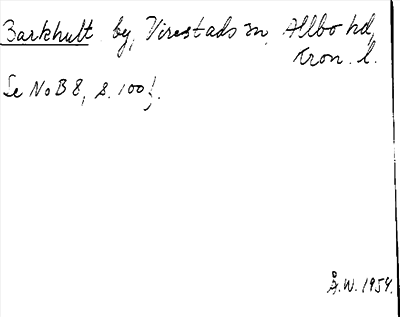 Barkhult by, Virestads sn, Allbo hd,
Kron. l.
Se No B 8, s. 100 f.
Å.W. 1954.